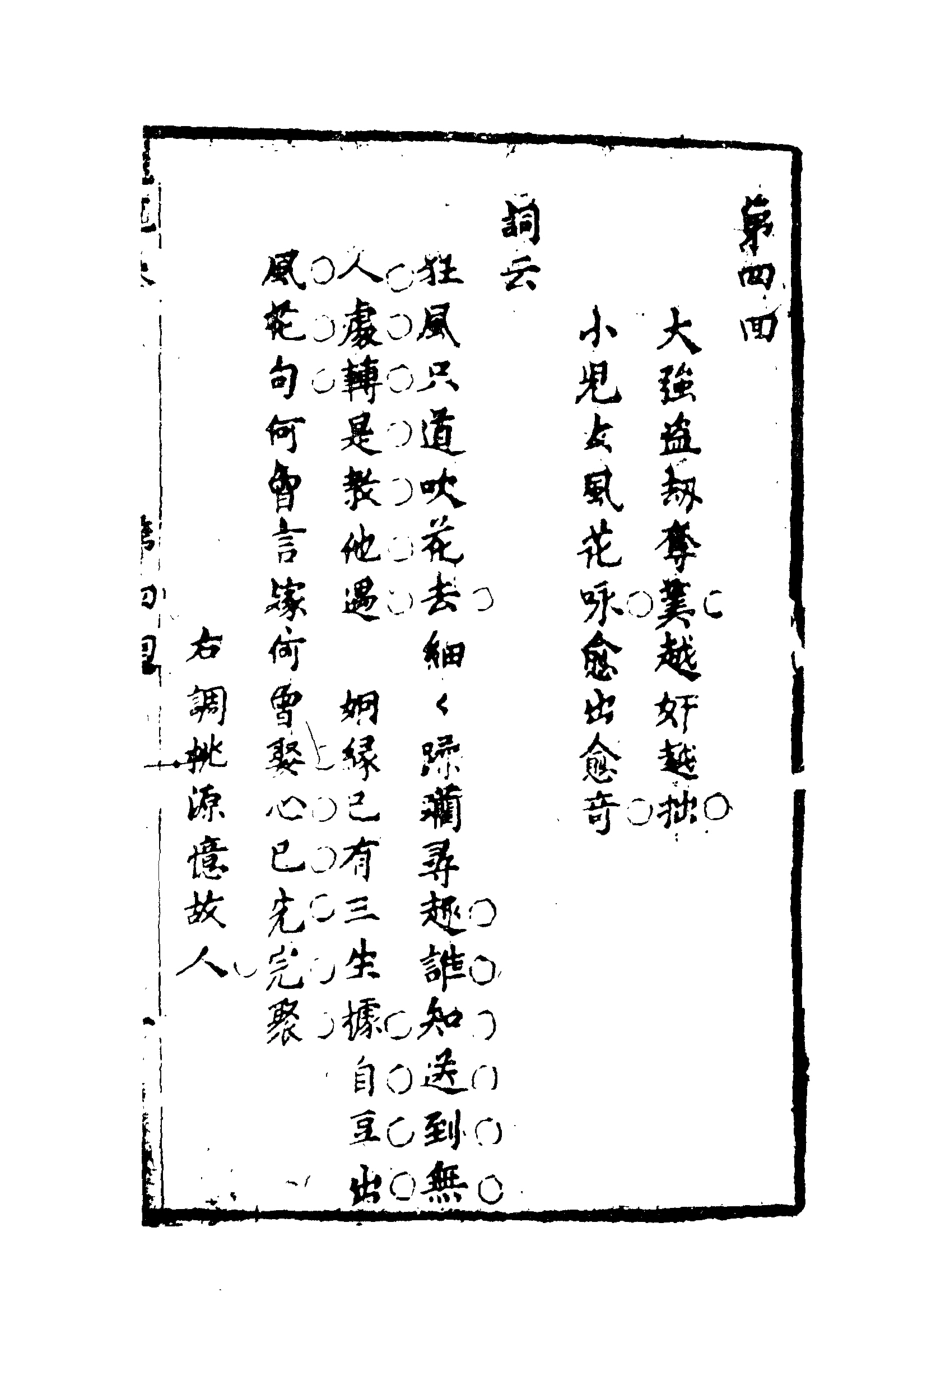 第四回
大強盗劫奪美越奸越拙
小児女風花咏愈出愈奇
詞云
狂風只道吹花去細〻蹂躪尋趣誰知送到無
人處轉是教他遇　姻縁已有三生據自豆出
風花句何曾言嫁何曾娶心已先完聚
右調桃源憶故人
第四回